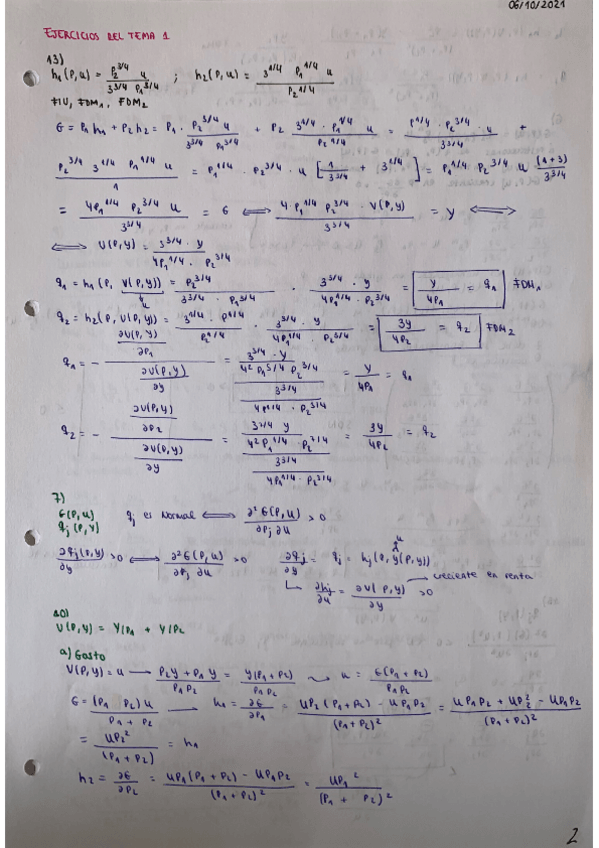 06/10/2021
EJERCICIOS DEL TEMA 1
13)
h₁(P,u) = P₂^3/4 u / 3^3/4 P₁^3/4 ; h₂(P,u) = 3^1/4 P₁^1/4 u / P₂^1/4
FIU, FDM₁, FDM₂
G = P₁h₁ + P₂h₂ = P₁ · P₂^3/4 u / 3^3/4 P₁^3/4 + P₂ 3^1/4 · P₁^1/4 u / P₂^1/4 = P₁^1/4 · P₂^3/4 · u / 3^3/4 +
P₂^3/4 3^1/4 P₁^1/4 u / 1 = P₁^1/4 · P₂^3/4 · u [1/3^3/4 + 3^1/4] = P₁^1/4 P₂^3/4 u (1+3)/3^3/4
= 4P₁^1/4 P₂^3/4 u / 3^3/4 = G ⟺ 4 P₁^1/4 P₂^3/4 · V(P,y) / 3^3/4 = y ⟺
⟺ V(P,y) = 3^3/4 · y / 4P₁^1/4 · P₂^3/4
q₁ = h₁(P, V(P,y)) = P₂^3/4 / 3^3/4 · P₁^3/4 · 3^3/4 · y / 4P₁^1/4 · P₂^3/4 = y / 4P₁ = q₁ FDM₁
u
q₂ = h₂(P, V(P,y)) = 3^1/4 · P₁^1/4 / P₂^1/4 · 3^3/4 · y / 4P₁^1/4 · P₂^3/4 = 3y / 4P₂ = q₂ FDM₂
q₁ = - ∂V(P,y)/∂P₁ / ∂V(P,y)/∂y = 3^3/4 · y / 4² P₁^5/4 P₂^3/4 / 3^3/4 / 4P₁^1/4 · P₂^3/4 = y / 4P₁ = q₁
q₂ = - ∂V(P,y)/∂P₂ / ∂V(P,y)/∂y = 3^7/4 y / 4² P₁^1/4 · P₂^7/4 / 3^3/4 / 4P₁^1/4 · P₂^3/4 = 3y / 4P₂ = q₂
7)
G(P,u) qj es normal ⟺ ∂²G(P,u) / ∂Pj ∂u > 0
qj(P,y)
∂qj(P,y) / ∂y > 0 ⟺ ∂²G(P,u) / ∂Pj ∂u > 0 ∂qj / ∂y = qj = hj(P, V(P,y))
u
↳ ∂hj / ∂u = ∂V(P,y) / ∂y > 0 → creciente en renta
10)
V(P,y) = y/P₁ + y/P₂
a) Gasto
V(P,y) = u → P₂y + P₁y / P₁P₂ = y(P₁+P₂) / P₁P₂ → u = G(P₁+P₂) / P₁P₂
G = (P₁ P₂) u / P₁ + P₂ → h₁ = ∂G / ∂P₁ = uP₂(P₁+P₂) - uP₁P₂ / (P₁+P₂)² = uP₁P₂ + uP₂² - uP₁P₂ / (P₁+P₂)²
= uP₂² / (P₁+P₂)² = h₁
h₂ = ∂G / ∂P₂ = uP₁(P₁+P₂) - uP₁P₂ / (P₁+P₂)² = uP₁² / (P₁ + P₂)²
2